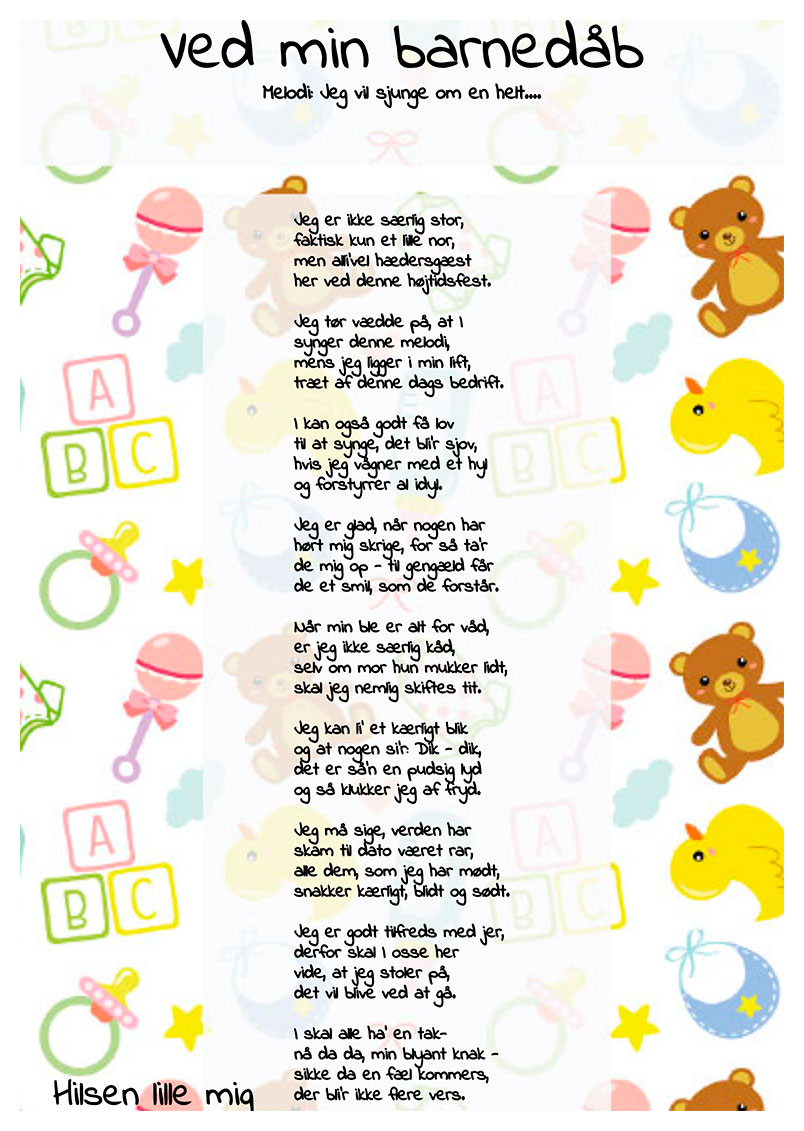 Ved min barnedåb
Melodi: Jeg vil sjunge om en helt....
Jeg er ikke særlig stor,
faktisk kun et lille nor,
men alli'vel hædersgæst
her ved denne højtidsfest.
Jeg tør vædde på, at I
synger denne melodi,
mens jeg ligger i min lift,
træt af denne dags bedrift.
I kan også godt få lov
til at synge, det bli'r sjov,
hvis jeg vågner med et hyl
og forstyrrer al idyl.
Jeg er glad, når nogen har
hørt mig skrige, for så ta'r
de mig op - til gengæld får
de et smil, som de forstår.
Når min ble er alt for våd,
er jeg ikke særlig kåd,
selv om mor hun mukker lidt,
skal jeg nemlig skiftes tit.
Jeg kan li' et kærligt blik
og at nogen si'r: Dik - dik,
det er så'n en pudsig lyd
og så klukker jeg af fryd.
Jeg må sige, verden har
skam til dato været rar,
alle dem, som jeg har mødt,
snakker kærligt, blidt og sødt.
Jeg er godt tilfreds med jer,
derfor skal I osse her
vide, at jeg stoler på,
det vil blive ved at gå.
I skal alle ha' en tak-
nå da da, min blyant knak -
sikke da en fæl kommers,
der bli'r ikke flere vers.
Hilsen lille mig
A
B C
A
B C
A
B C
A
B C